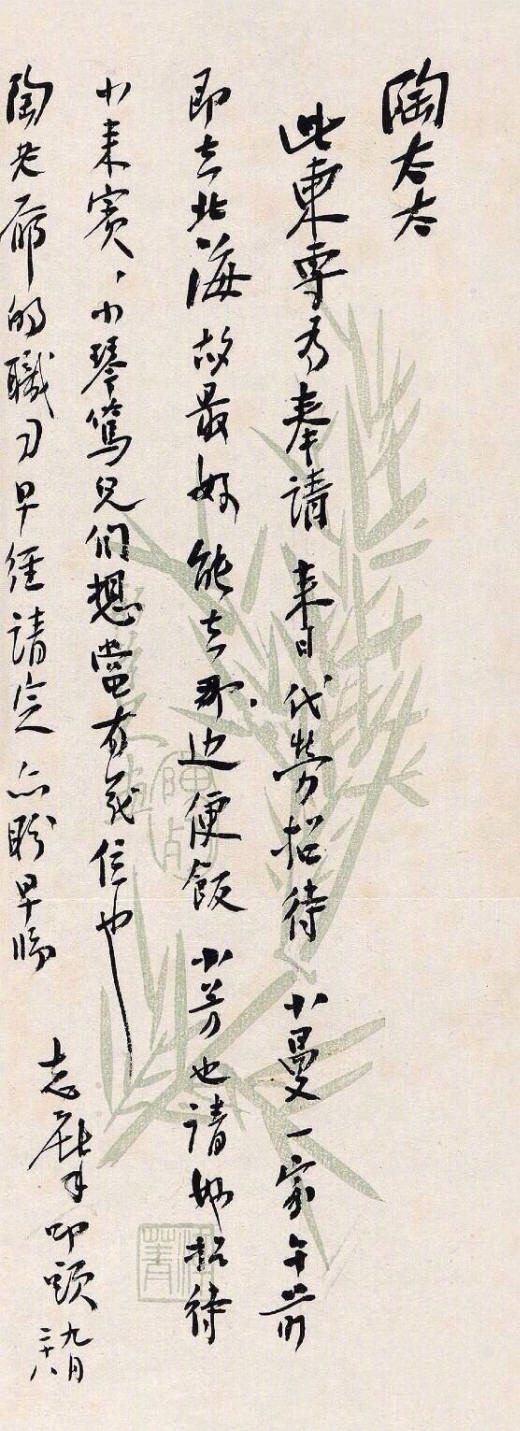 陶太太
此柬專为奉請 来日代勞招待 小曼一家午前
即去北海故最好能去那边便飯 小芳也請妳招待
小来賓、小琴篤兒们想當有我信也
陶老爺的職司早經請定亦盼早临
志摩叩頭 九月二十八